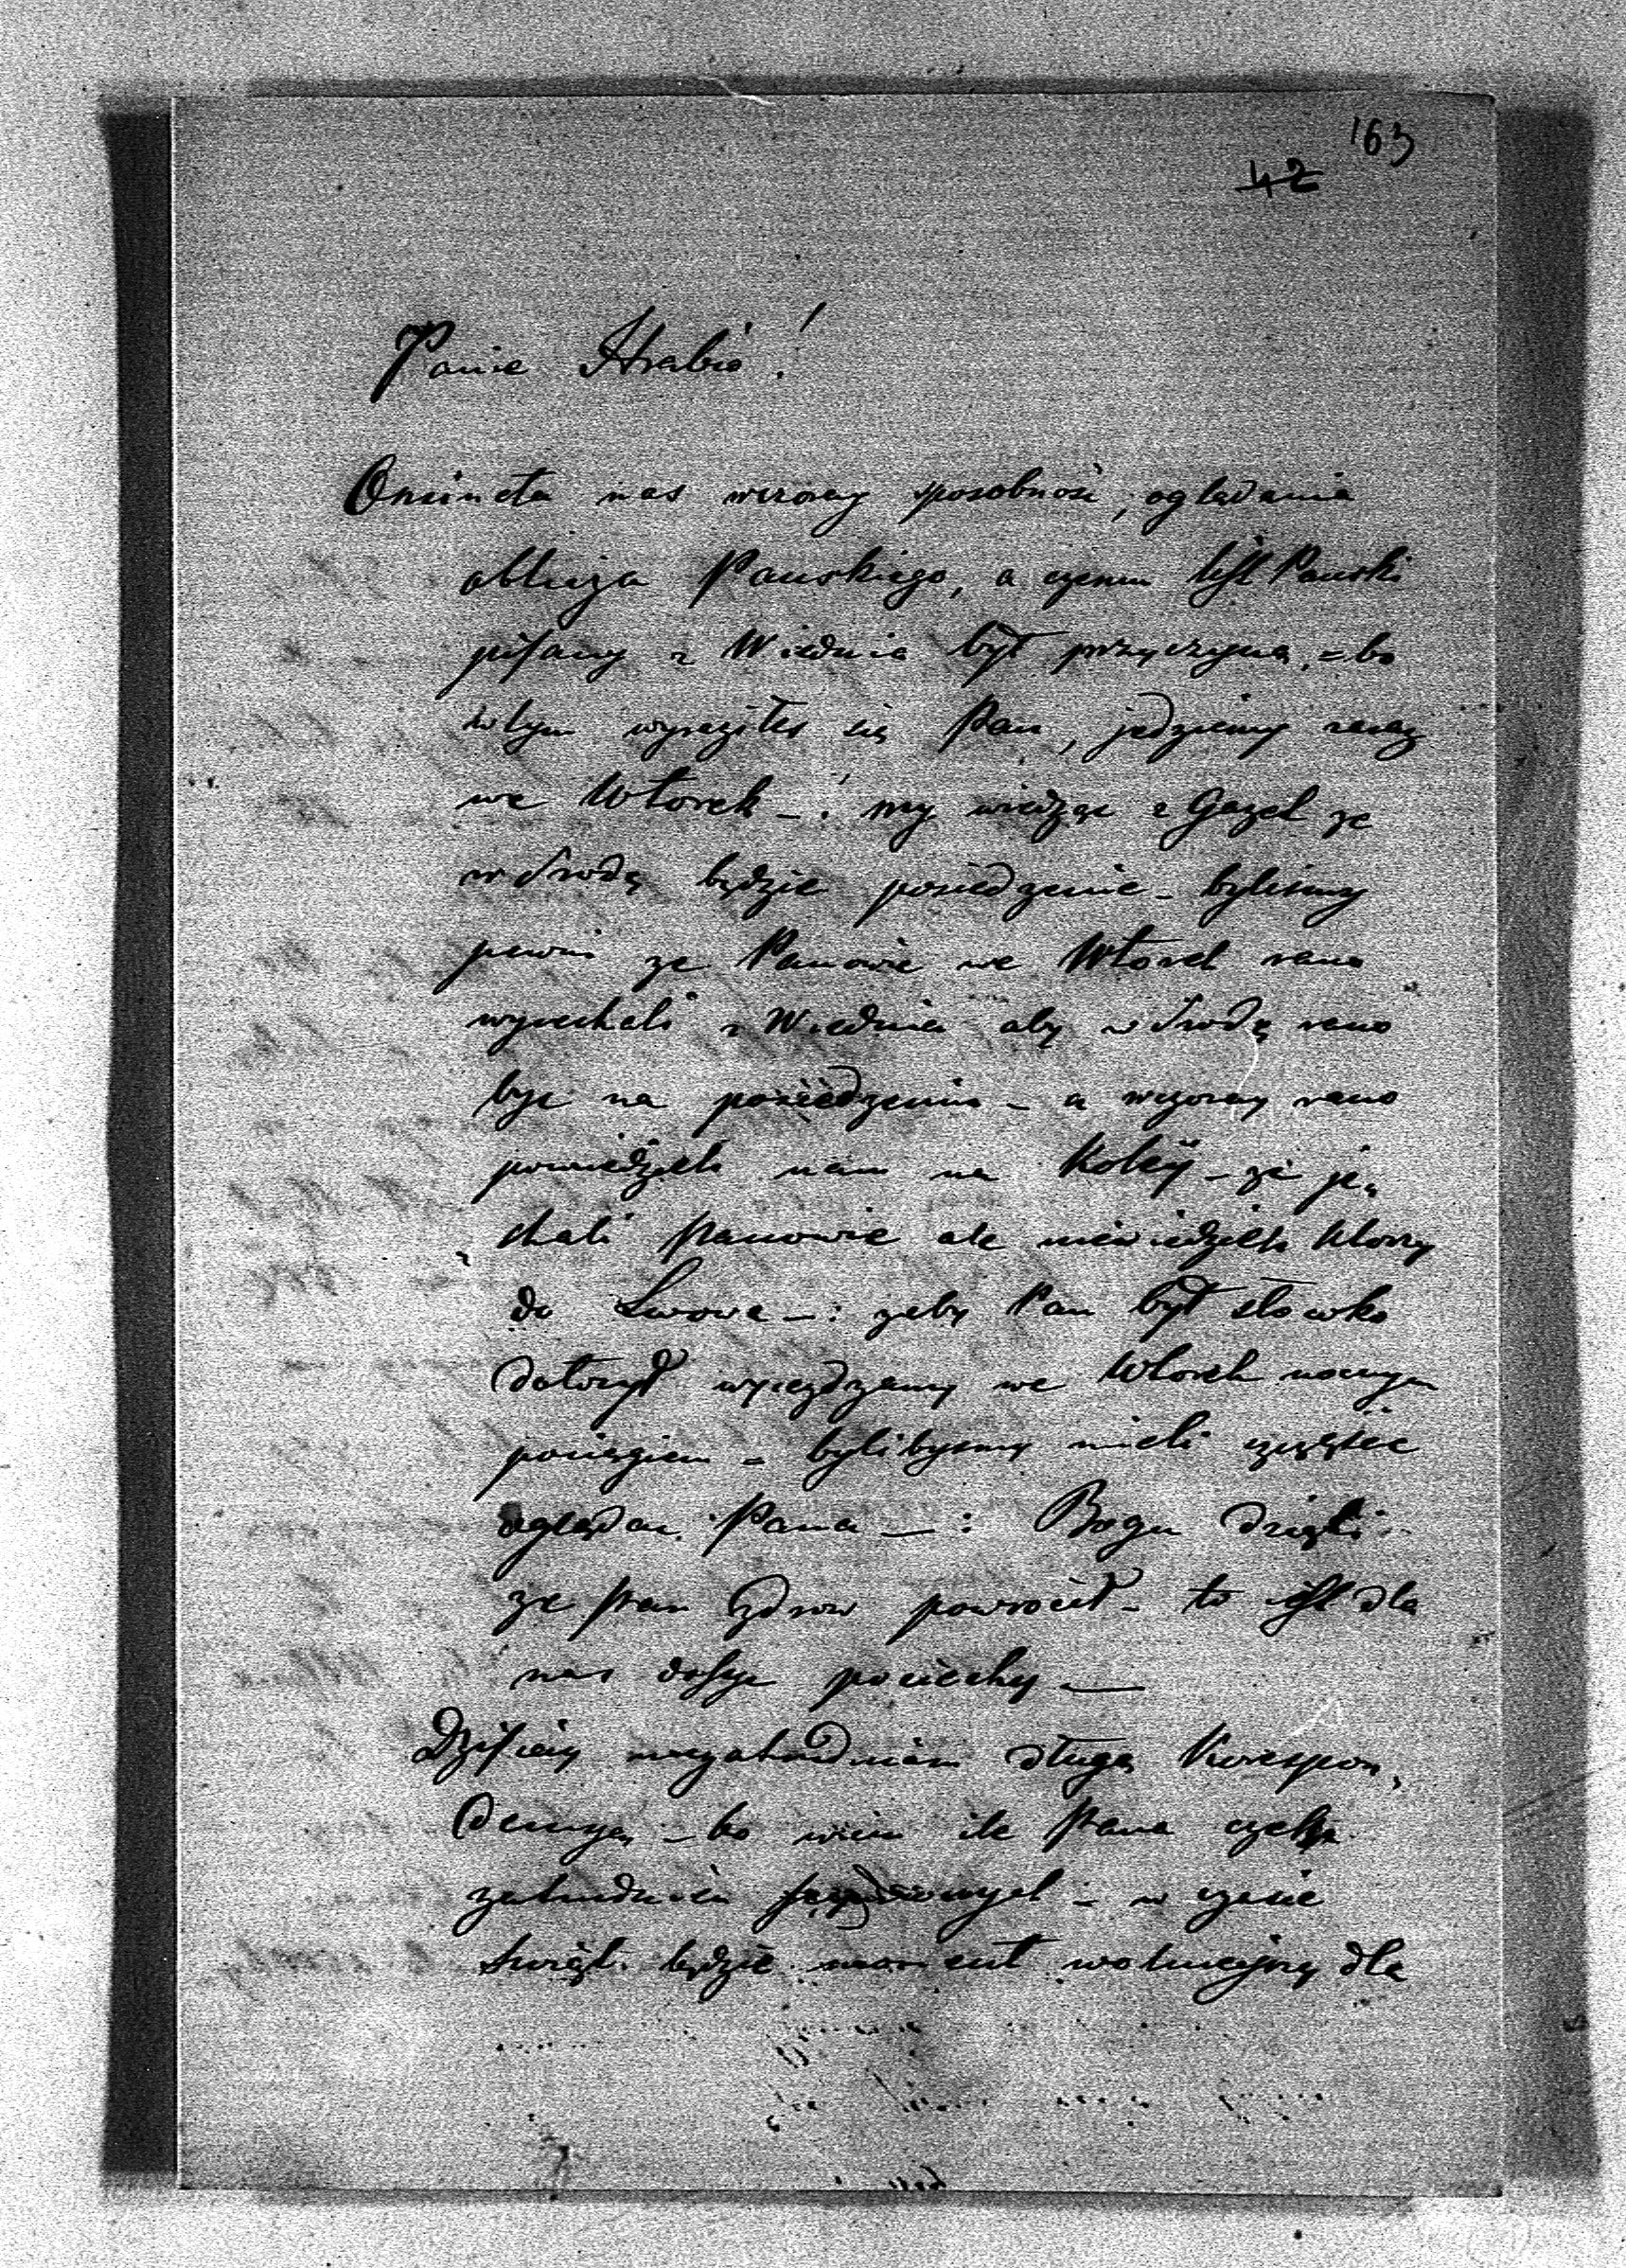 163
42
Panie Hrabio!
Ominęła nas wczoray sposobność, oglądania
oblicza Pańskiego, a czemu list Pański
pisany z Wiednia był przyczyną = bo
w tym wyraziłeś się Pan, jedziemy
we Wtorek -: my wiedząc z Gazet ze
w Srodę będzie posiedzenie - bylismy
pewni ze Panowie we Wtorek rano
wyiechali z Wiednia aby w Srodę rano
byc na posiedzeniu - a wczoray rano
powiedzieli nam na Koleÿ - ze je„
„chali Panowie ale niewiedzieli ktorzy
do Lwowa -: zeby Pan był słowko
dołozył wyiezdzamy we Wtorek nocnym
pociągiem = bylibysmy mieli
oglądac Pana -: Bogu dzięki
ze Pan zdrow powrocił - to jest dla
nas dosyc pociechy —
Dzisiay niezatrudniam długą Korespon„
dencyą - bo wiem ile Pana czeka
zatrudnien - w czasie
Swiąt będzie moment wolnieyszy dla